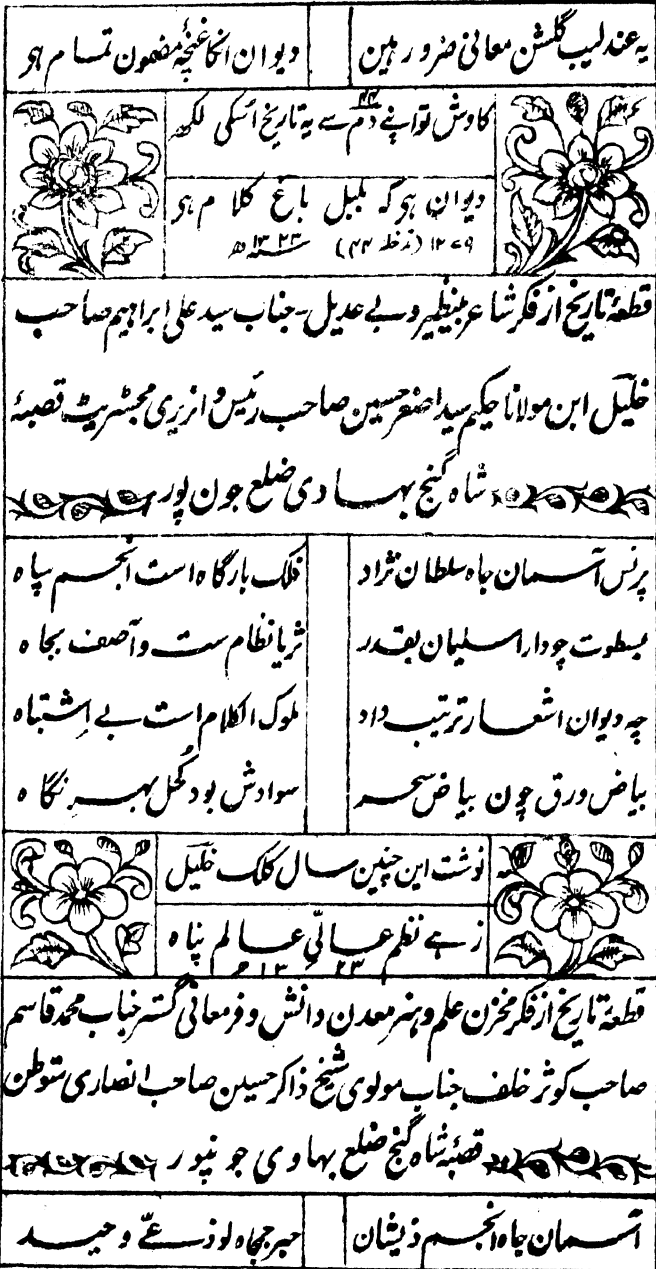 یہ عندلیب گلشن معانی ضرور ہین دیوان انکا غنچۂ مضمون تمام ہو
کاوش تو اپنے دم سے یہ تاریخ اسکی لکھ
۴۴
دیوان ہو کہ بلبل باغ کلام ہو
۱۲۷۹ (تدخلہ ۴۴) ۱۳۲۳ھ
قطعۂ تاریخ از فکر شاعر بینظیر و بے عدیل۔ جناب سید علی ابراہیم صاحب
خلیل ابن مولانا حکیم سید اصغر حسین صاحب رئیس و انریری مجسٹریٹ قصبۂ
شاہ گنج بہادی ضلع جون پور
پرنس آسمان جاہ سلطان نژاد فلک بارگاہ است انجم سپاہ
بسطوت چو دارا سلیمان بقدر ثریا نظام ست و آصف بجاہ
چہ دیوان اشعار ترتیب داد ملوک الکلام است بے اشتباہ
بیاض ورق چون بیاض سحر سوادش بود کُحل بہر نگاہ
نوشت این چنین سال کلک خلیل
زہے نظم عالیِّ عالم پناہ
۱۳۲۳ھ
قطعۂ تاریخ از فکر مخزن علم و ہنر معدن دانش و فر معانی گستر جناب محمد قاسم
صاحب کوثر خلف جناب مولوی شیخ ذاکر حسین صاحب انصاری متوطن
قصبۂ شاہ گنج ضلع بہادی جونپور
آسمان جاہ انجم ذیشان حبر جمجاہ لوذعیّ وحید